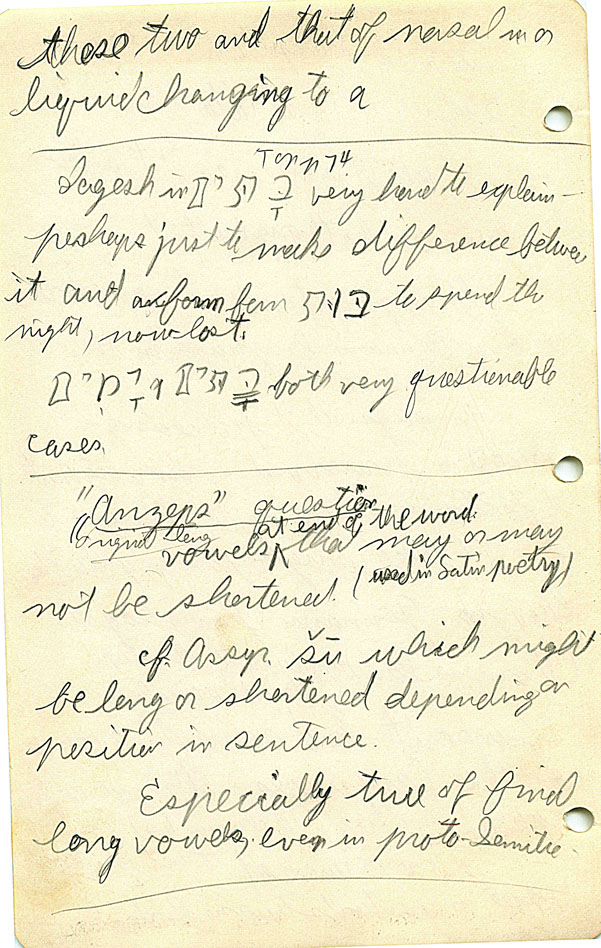 these two and that of nasal m or
liquid changing to a
p 74
Dagesh in בָּתִּים very hard to explain —
perhaps just to make difference between
it and a form from בות to spend the
night, now lost.
יָמִים & בָּתִּים both very questionable
cases.
"Anzeps" question
(Original long at end of the word
vowels that may or may
not be shortened. (used in Latin poetry)
cf. Assyr. šū which might
be long or shortened depending on
position in sentence.
Especially true of final
long vowels, even in proto-Semitic.